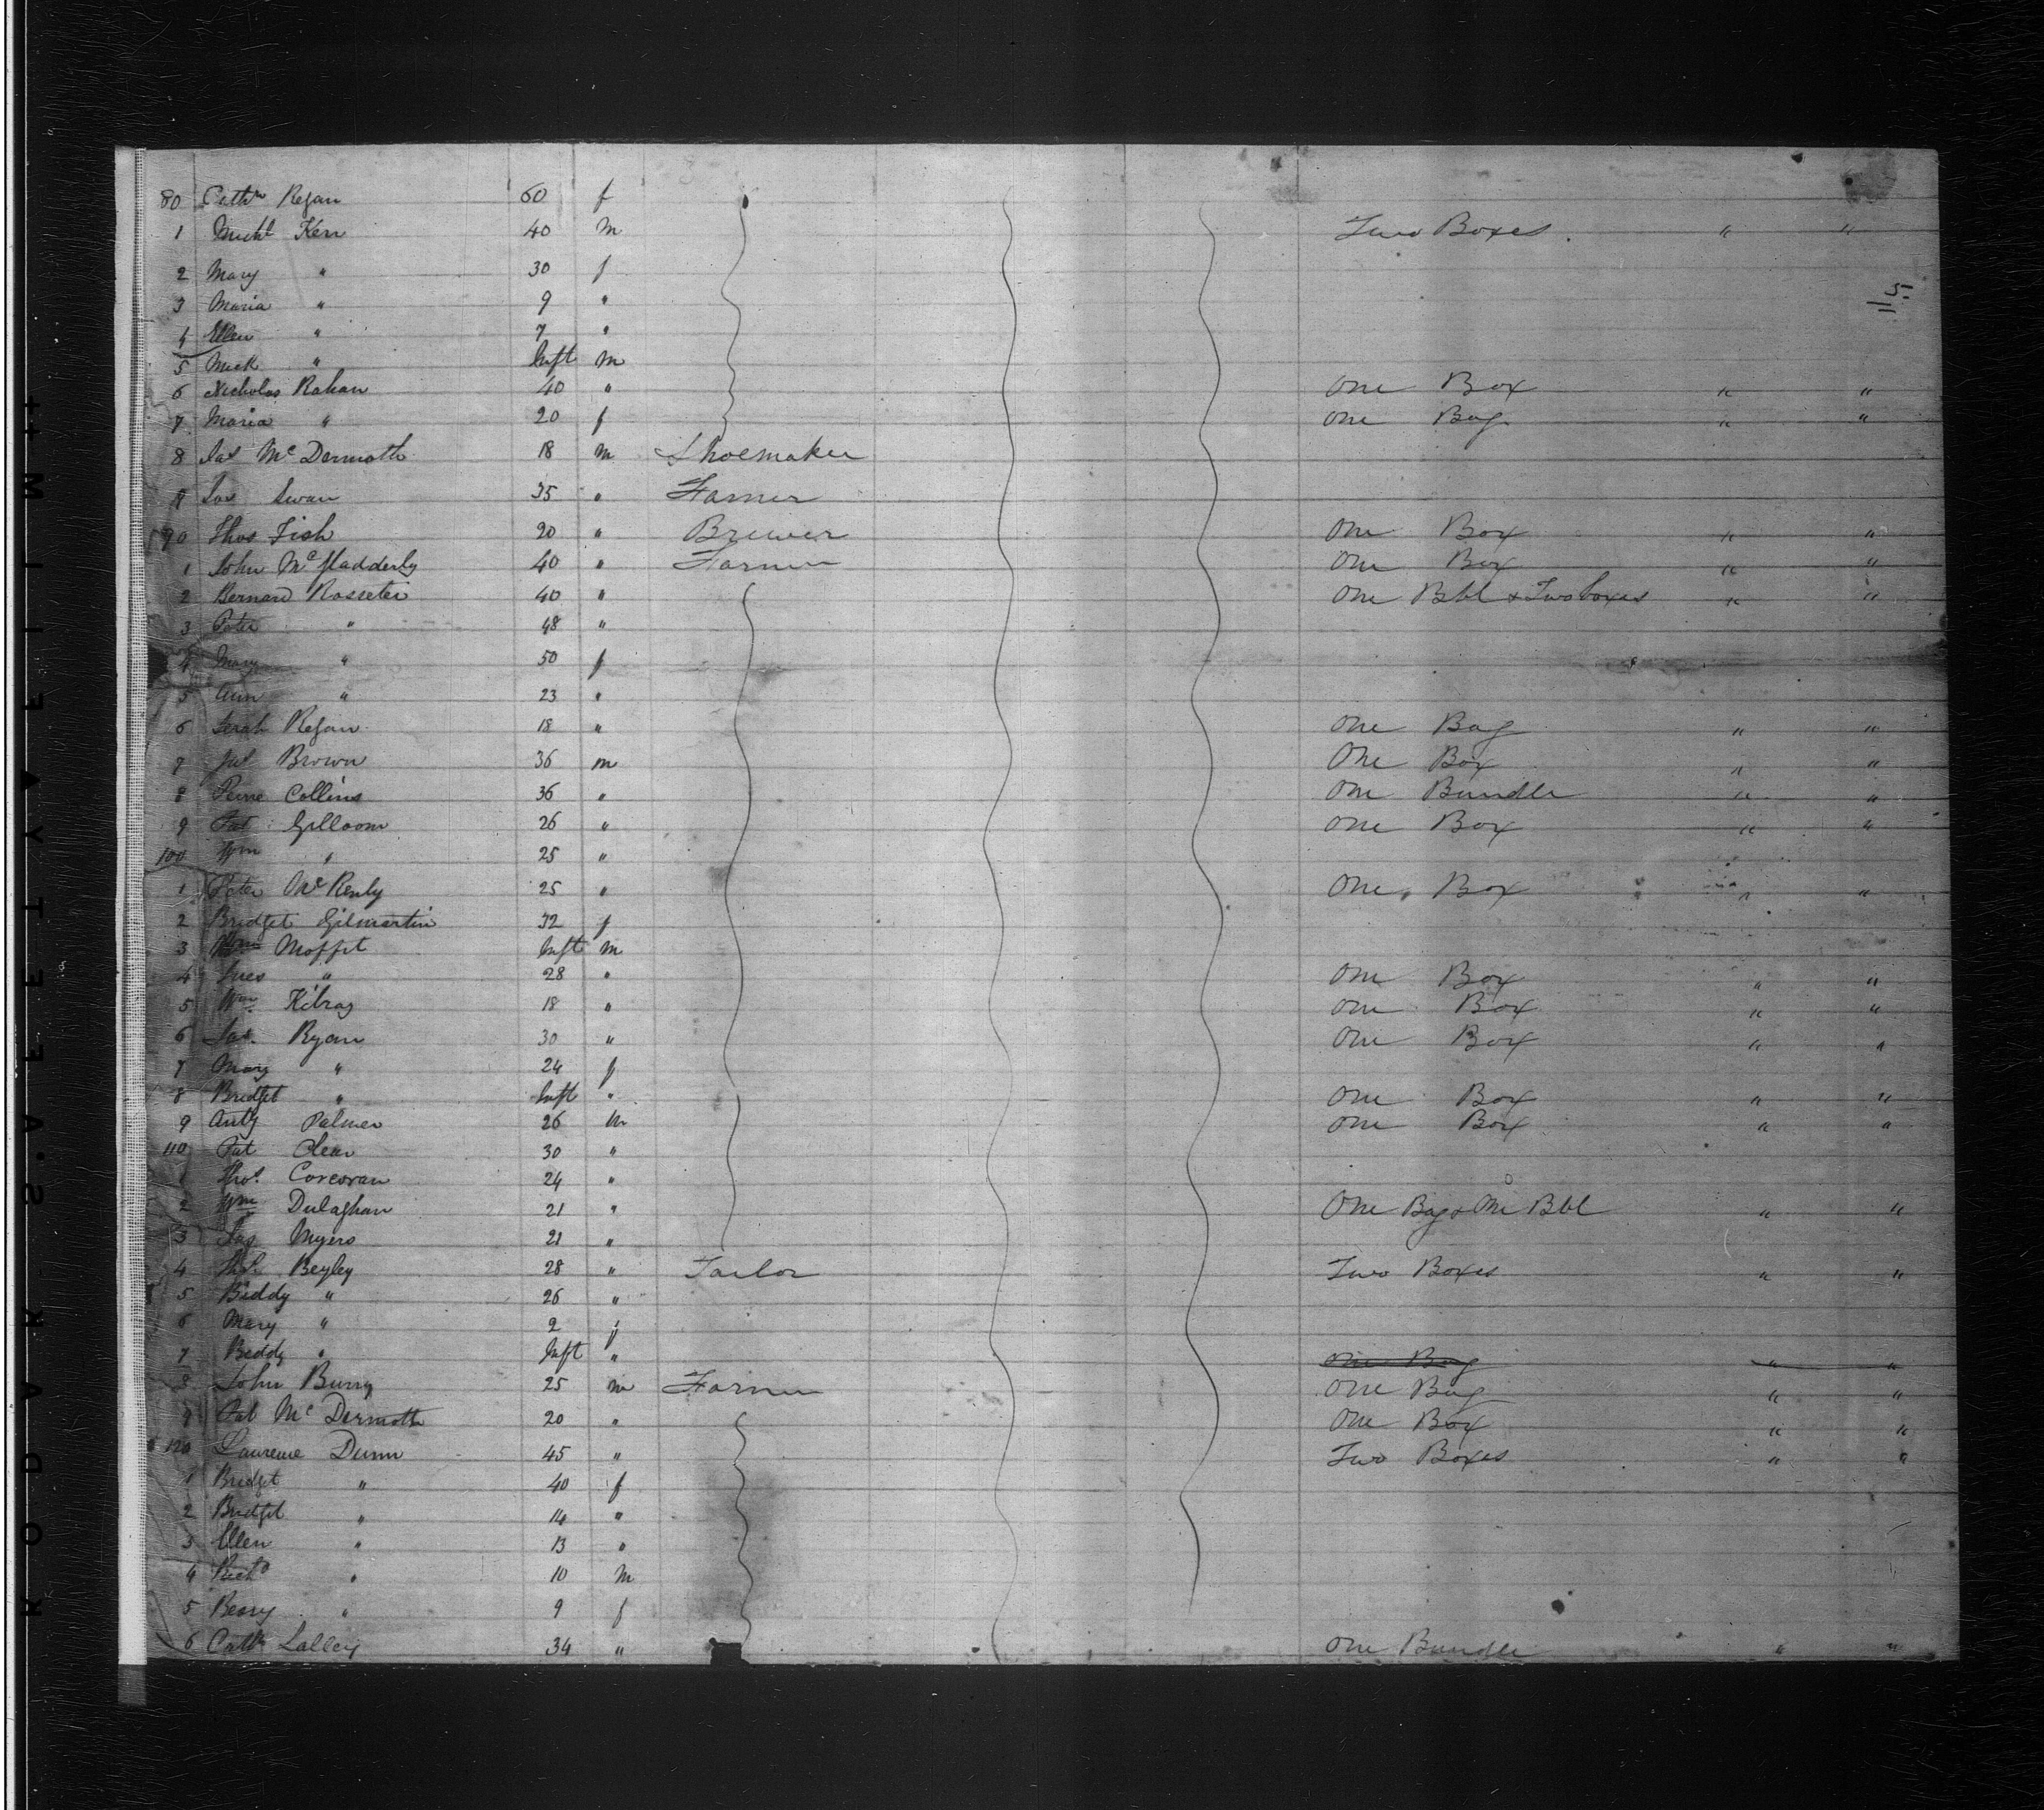 80 Cathn Regan 60 f
1 Michl Kerr 40 m Two Boxes. " "
2 Mary " 30 f
3 Maria " 9 "
4 Ellen " 7 "
5 Mick " Inft m
6 Nicholas Rahan 40 " One Box " "
7 Maria " 20 f One Bag " "
8 Jas McDermoth 18 m Shoemaker
9 Jas Swan 35 " Farmer
90 Thos Fish 20 " Brewer One Box " "
1 John 40 " Farmer One Box " "
2 Bernard Rosseter 40 " One Bbl & Two boxes " "
3 Peter " 48 "
4 Mary " 50 f
5 Ann " 23 "
6 Sarah Regan 18 " One Bag " "
7 Jas Brown 36 m One Box " "
8 Collins 36 " One Bundle " "
9 Pat Gilloom 26 " One Box " "
100 Wm " 25 "
1 Peter 25 " One Box " "
2 Bridget Gilmartin 32 f
3 Wm Moffit Inft m
4 " 28 " One Box " "
5 Wm Kilray 18 " One Box " "
6 Jas. Ryan 30 " One Box " "
7 Mary " 24 f
8 Bridget " Inft " One Box " "
9 Anty Palmer 26 m One Box " "
110 Pat Clear 30 "
1 Thos Corcoran 24 "
2 Wm Dulaghan 21 " One Bag & One Bbl " "
3 Jas Myers 21 "
4 Beyley 28 " Tailor Two Boxes " "
5 Biddy " 26 "
6 Mary " 2 f
7 Biddy " Inft " One Bag " "
8 John Burry 25 m Farmer One Bag " "
9 Pat McDermoth 20 " One Box " "
120 Laurence Dunn 45 " Two Boxes " "
1 Bridget " 40 f
2 Bridget " 14 "
3 Ellen " 13 "
4 Richd " 10 m
5 Bessy " 9 f
6 Cathn Lalley 34 " One Bundle " "